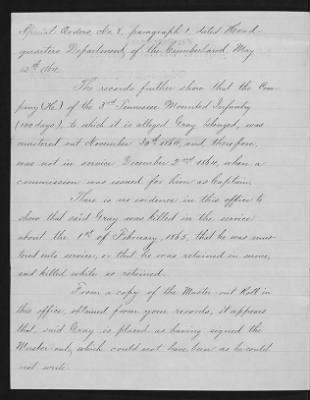 Special Orders, No. 8, paragraph 1, dated Head
quarters Department, of the Cumberland, May
12th 1864.
The records further show that the Com-
pany (H.) of the 3rd Tennessee Mounted Infantry
(100 days), to which it is alleged Gray belonged, was
mustered out November 30th 1864, and therefore,
was not in service December 2nd 1864, when a
commission was issued for him as Captain.
There is no evidence in this office to
show that said Gray was killed in the service
about the 1st of February, 1865, that he was mus-
tered into service, or that he was retained in service,
and killed while so retained.
From a copy of the Muster-out Roll in
this office, obtained from your records, it appears
that said Gray is placed as having signed the
Muster-out, which could not have been as he could
not write.